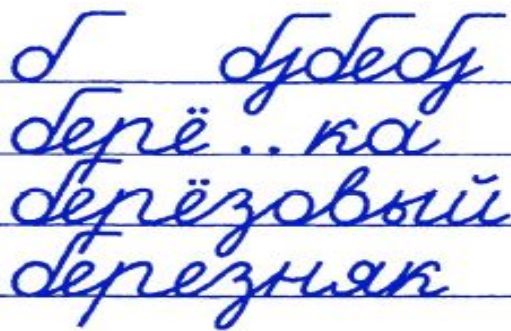 б бубебу
берё..ка
берёзовый
березняк